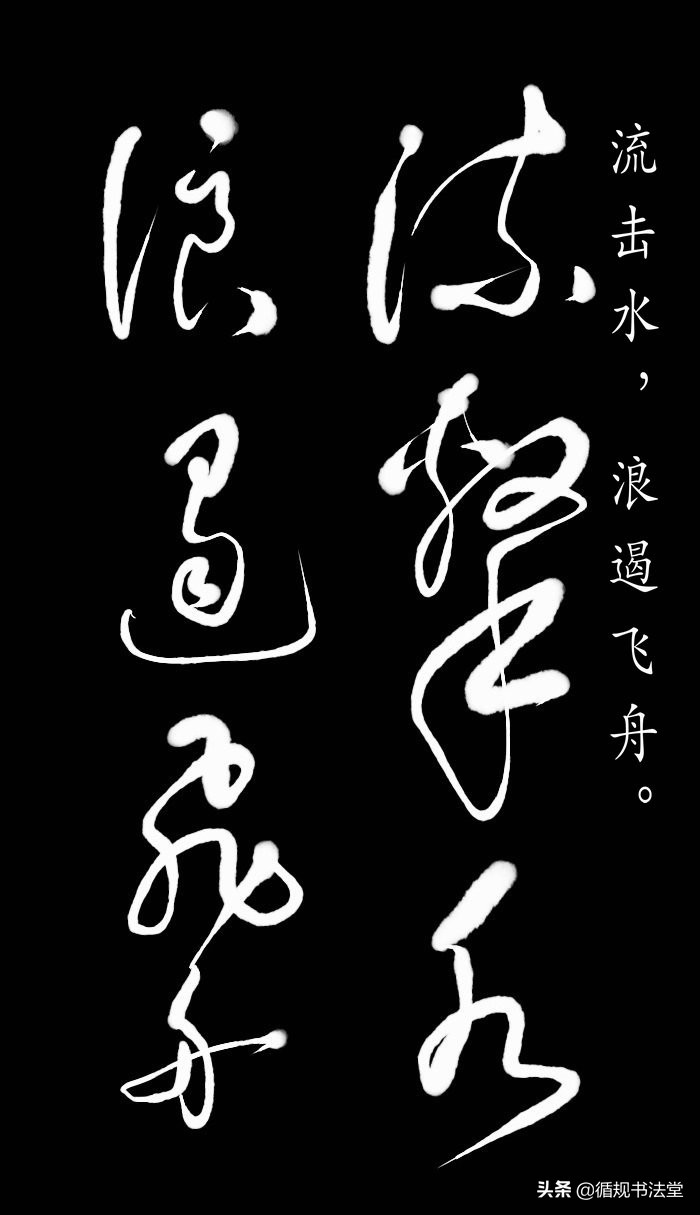 流击水，浪遏飞舟。
流擊水
浪遏飛舟
头条 @循规书法堂